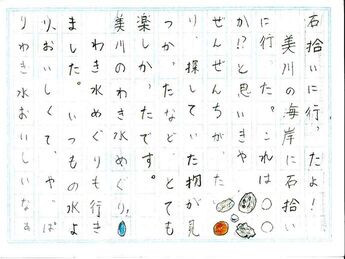 石拾いに行ったよ!
美川の海岸に石拾い
に行った。これは○○
か!?と思いきや
ぜんぜんちがった
り、探していた物が見
つかったなど、とても
楽しかったです。
美川のわき水めぐり
わき水めぐりも行き
ました。いつもの水よ
り、おいしくて、やっぱ
りわき水おいしいなぁ